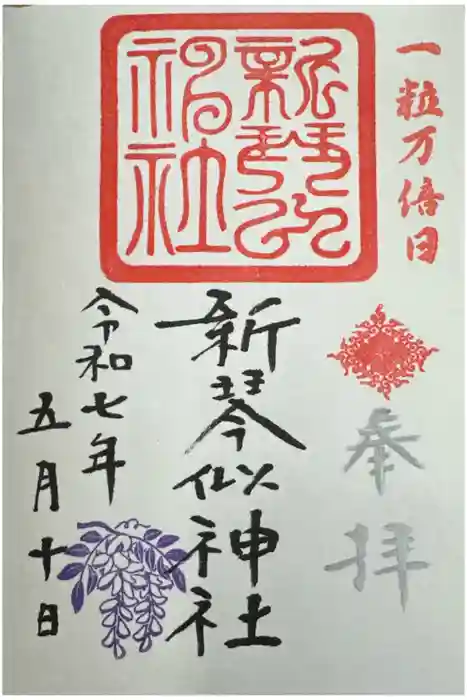 一粒万倍日
奉拝
新琴似神社
新琴似神社
令和七年
五月十日